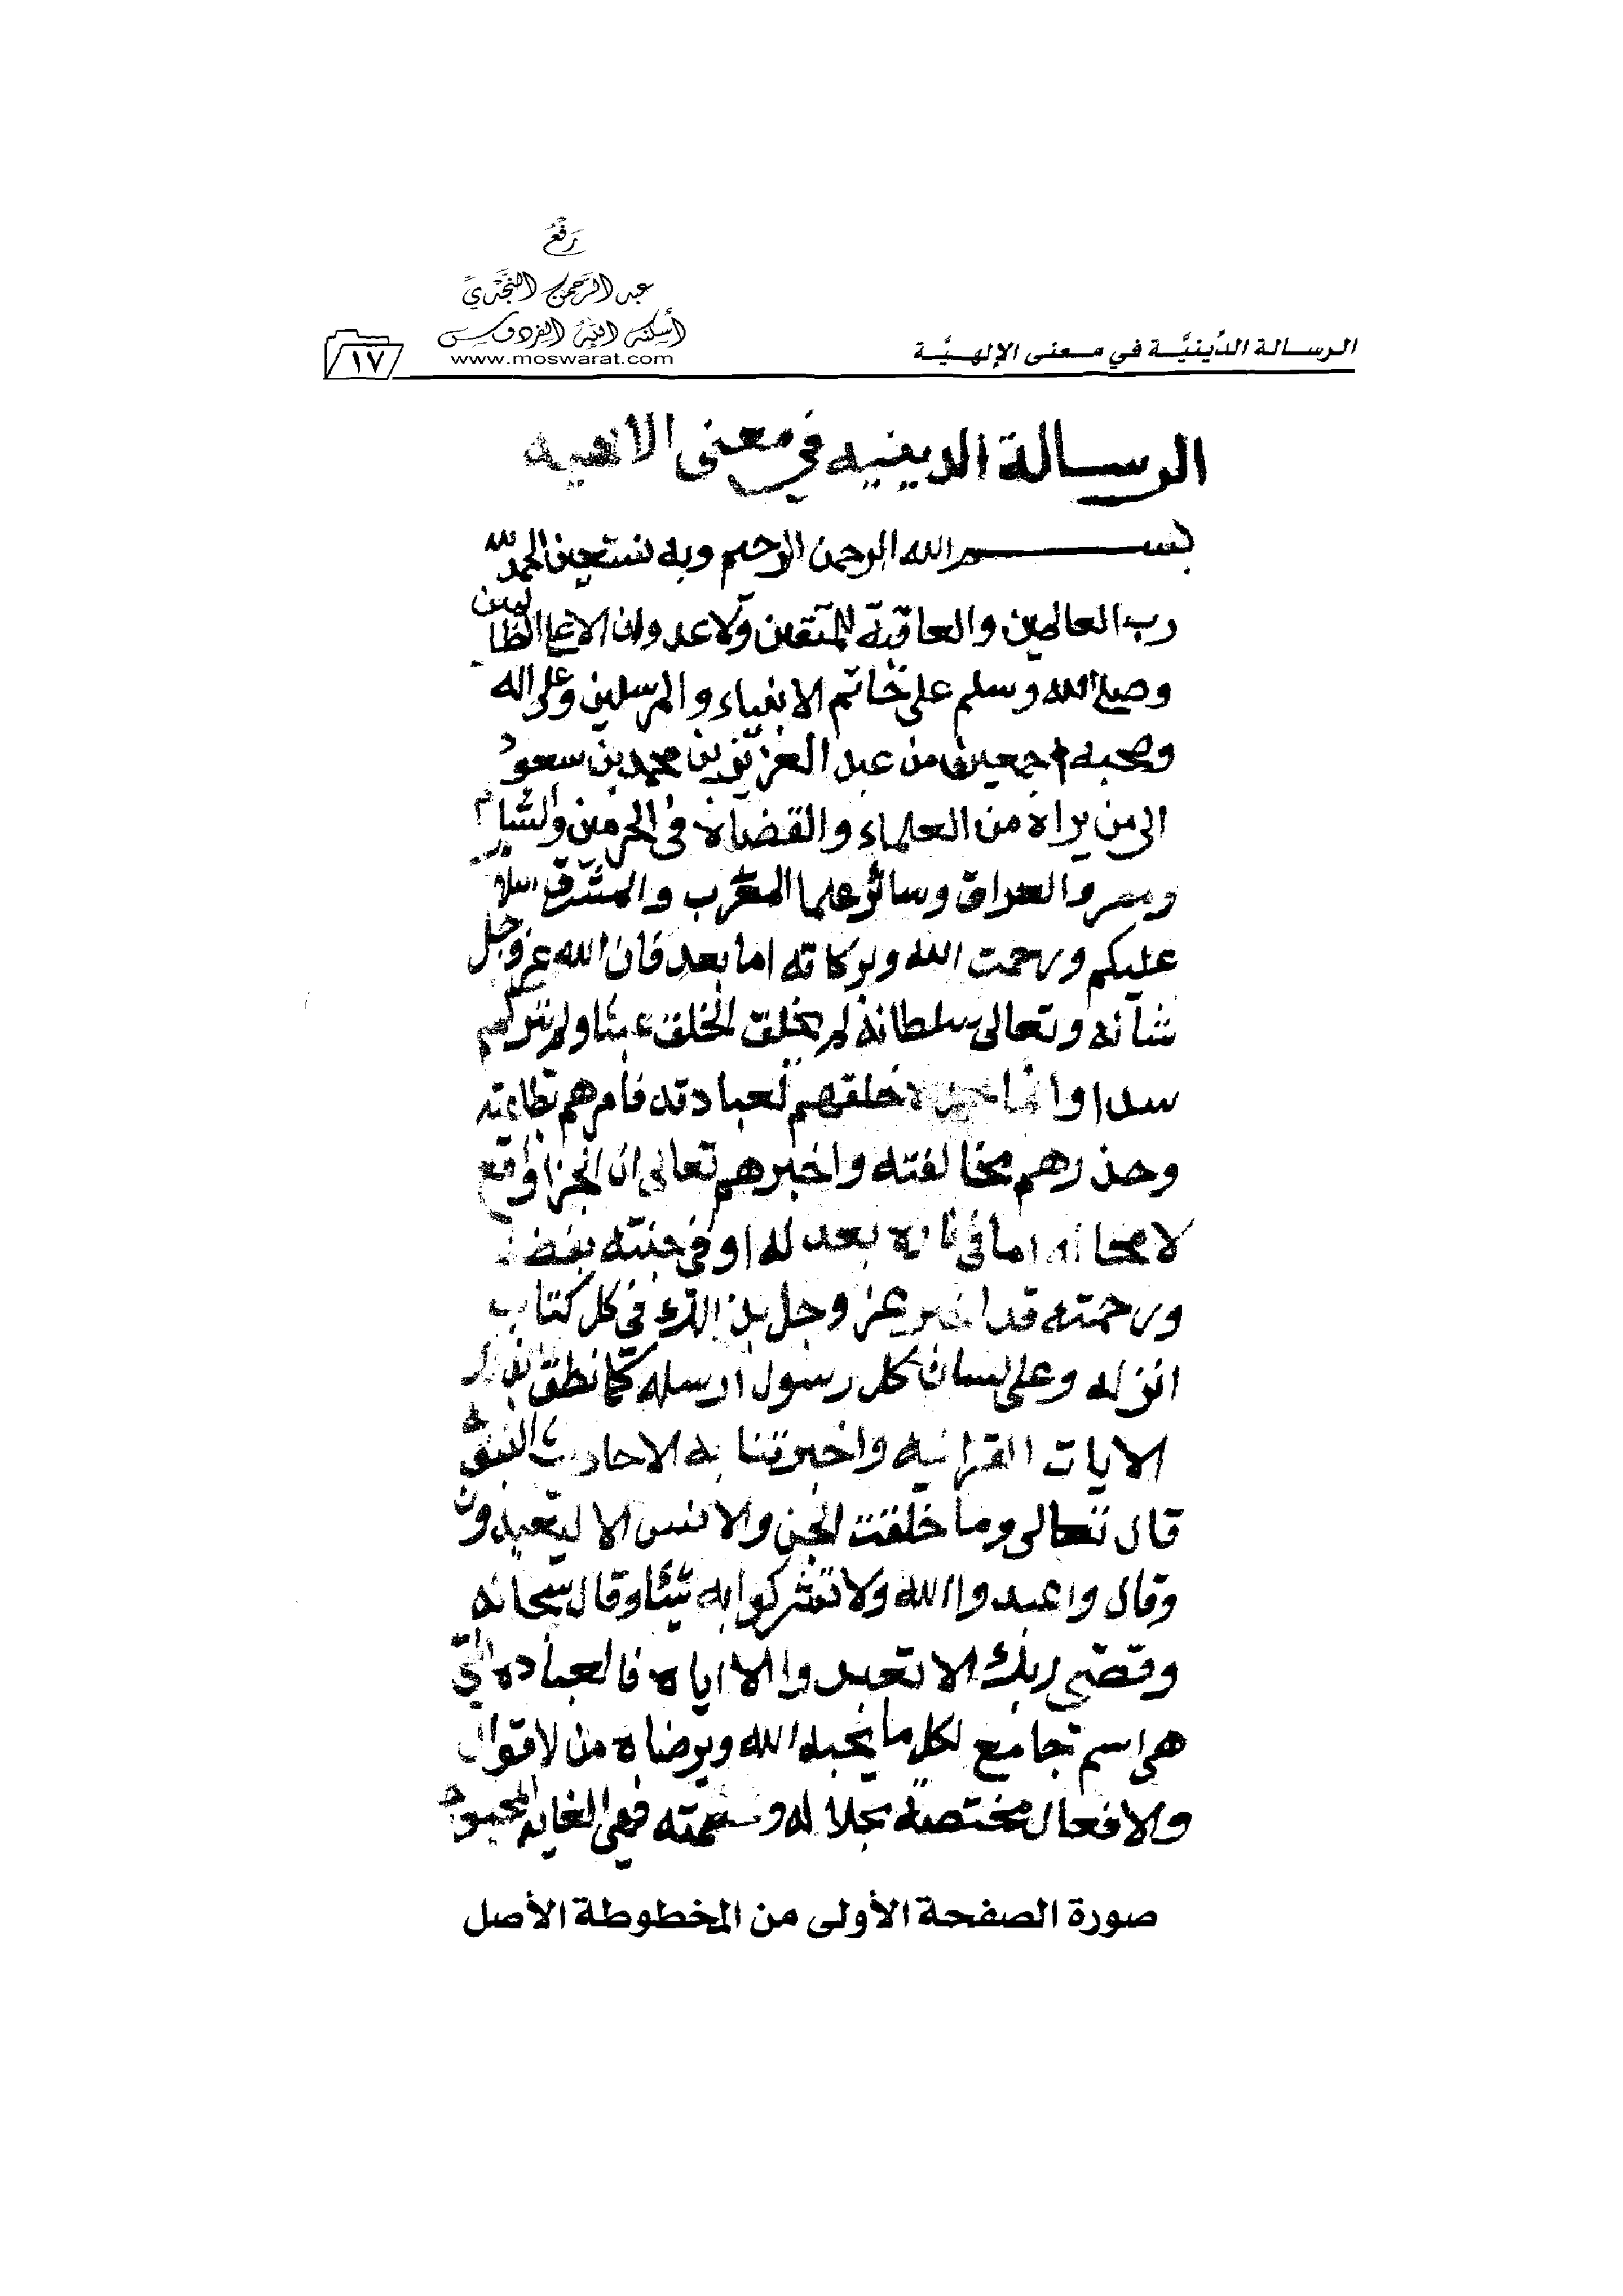 رفع
عبد الرحمن النجدي
أسكنه الله الفردوس
www.moswarat.com
الرسالة الدِّينيَّة في معنى الإلهيَّة
١٧
الرسالة الدينيه في معنى الالهيه
بسم الله الرحمن الرحيم وبه نستعين الحمد لله
رب العالمين والعاقبة للمتقين ولا عدوان الا على الظالمين
وصلى الله وسلم على خاتم الانبياء والمرسلين وعلى اله
وصحبه اجمعين من عبد العزيز بن محمد بن سعود
الى من يراه من العلماء والقضاة في الحرمين والشام
ومصر والعراق وسائر علما المغرب والمشرق سلام
عليكم ورحمت الله وبركاته اما بعد فان الله عز وجل
شأنه وتعالى سلطانه لم يخلق الخلق عبثا ولم يتركهم
سدا وانما خلقهم لعبادته فامرهم بطاعته
وحذرهم مخالفته واخبرهم تعالى ان الجزا واقع
لا محاله اما في ناره بعدله او في جنته بفضله
ورحمته قد اخبر عز وجل بذالك في كل كتاب
انزله وعلى لسان كل رسول ارسله كما نطق بذلك
الايات القرانيه واخبرتنا به الاحاديث النبويه
قال تعالى وما خلقت الجن والانس الا ليعبدون
وقال واعبدوا الله ولا تشركوا به شيئا وقال سبحانه
وقضى ربك الا تعبدوا الا اياه فالعباده التي
هي اسم جامع لكل ما يحبه الله ويرضاه من لاقوال
والافعال مختصة بجلاله وعظمته فهي الغايه المحبوه
صورة الصفحة الأولى من المخطوطة الأصل